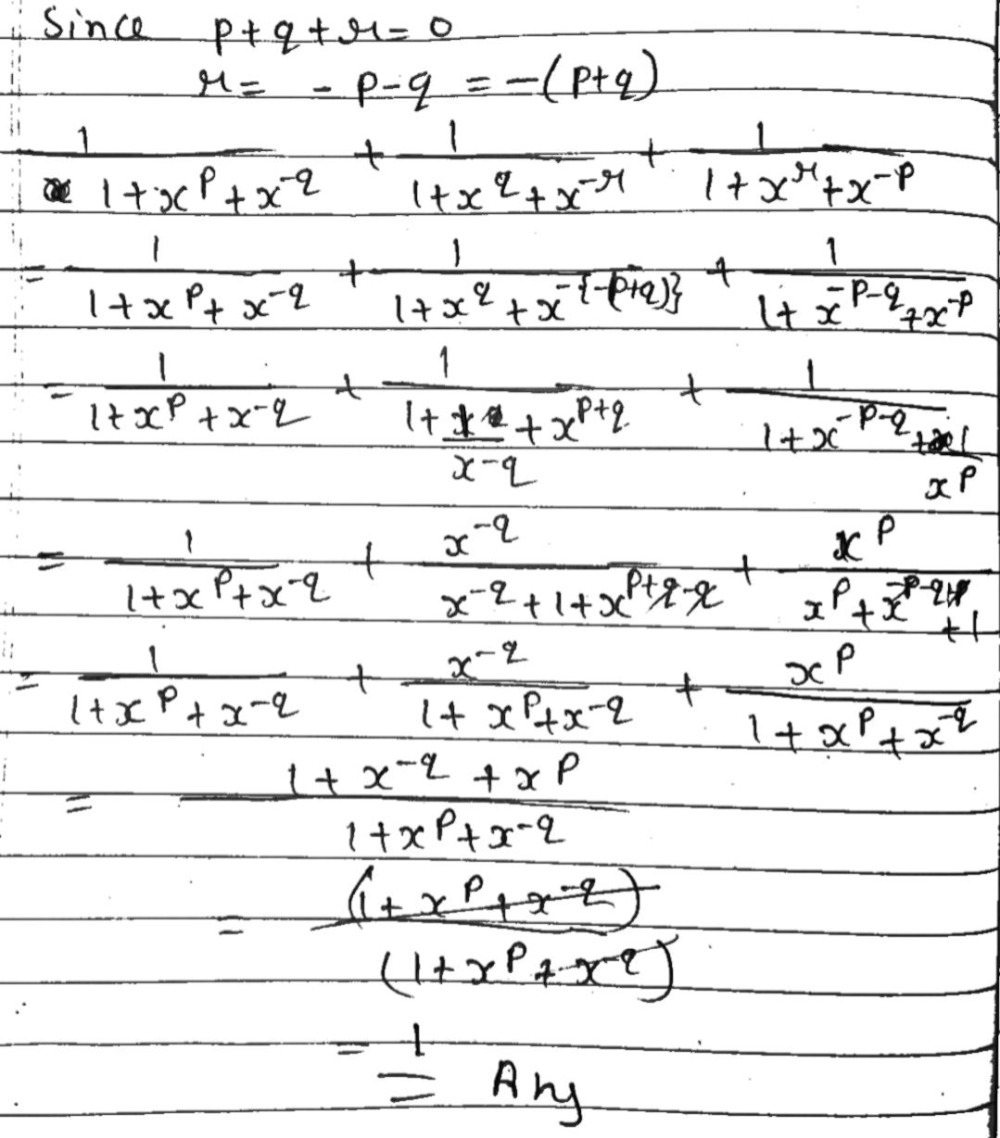 Since p+q+r=0
r= -p-q = -(p+q)
1/(1+x^p+x^-q) + 1/(1+x^q+x^-r) + 1/(1+x^r+x^-p)
= 1/(1+x^p+x^-q) + 1/(1+x^q+x^-{-(p+q)}) + 1/(1+x^-p-q+x^-p)
= 1/(1+x^p+x^-q) + 1/(1+1/x^-q+x^p+q) + 1/(1+x^-p-q+1/x^p)
= 1/(1+x^p+x^-q) + x^-q/(x^-q+1+x^p+q-q) + x^p/(x^p+x^-p-q+p+1)
= 1/(1+x^p+x^-q) + x^-q/(1+x^p+x^-q) + x^p/(1+x^p+x^-q)
= (1+x^-q+x^p)/(1+x^p+x^-q)
= (1+x^p+x^-q)/(1+x^p+x^-q)
= 1
= Any